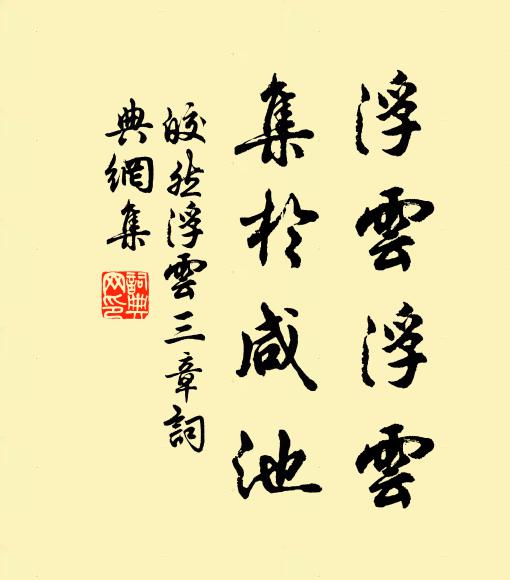 浮雲浮雲
集於咸池
皎然浮雲三章詞
典網集
詞典
网印